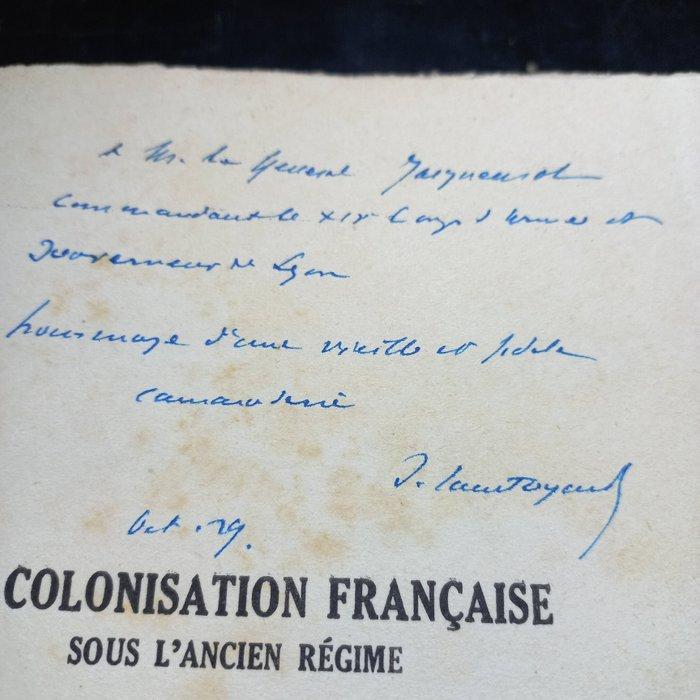 à Mr. le General
Commandant le XIVe Corps d'Armée et
Gouverneur de Lyon
hommage d'une vieille et fidèle
camaraderie
Oct. 29.
COLONISATION FRANÇAISE
SOUS L'ANCIEN RÉGIME